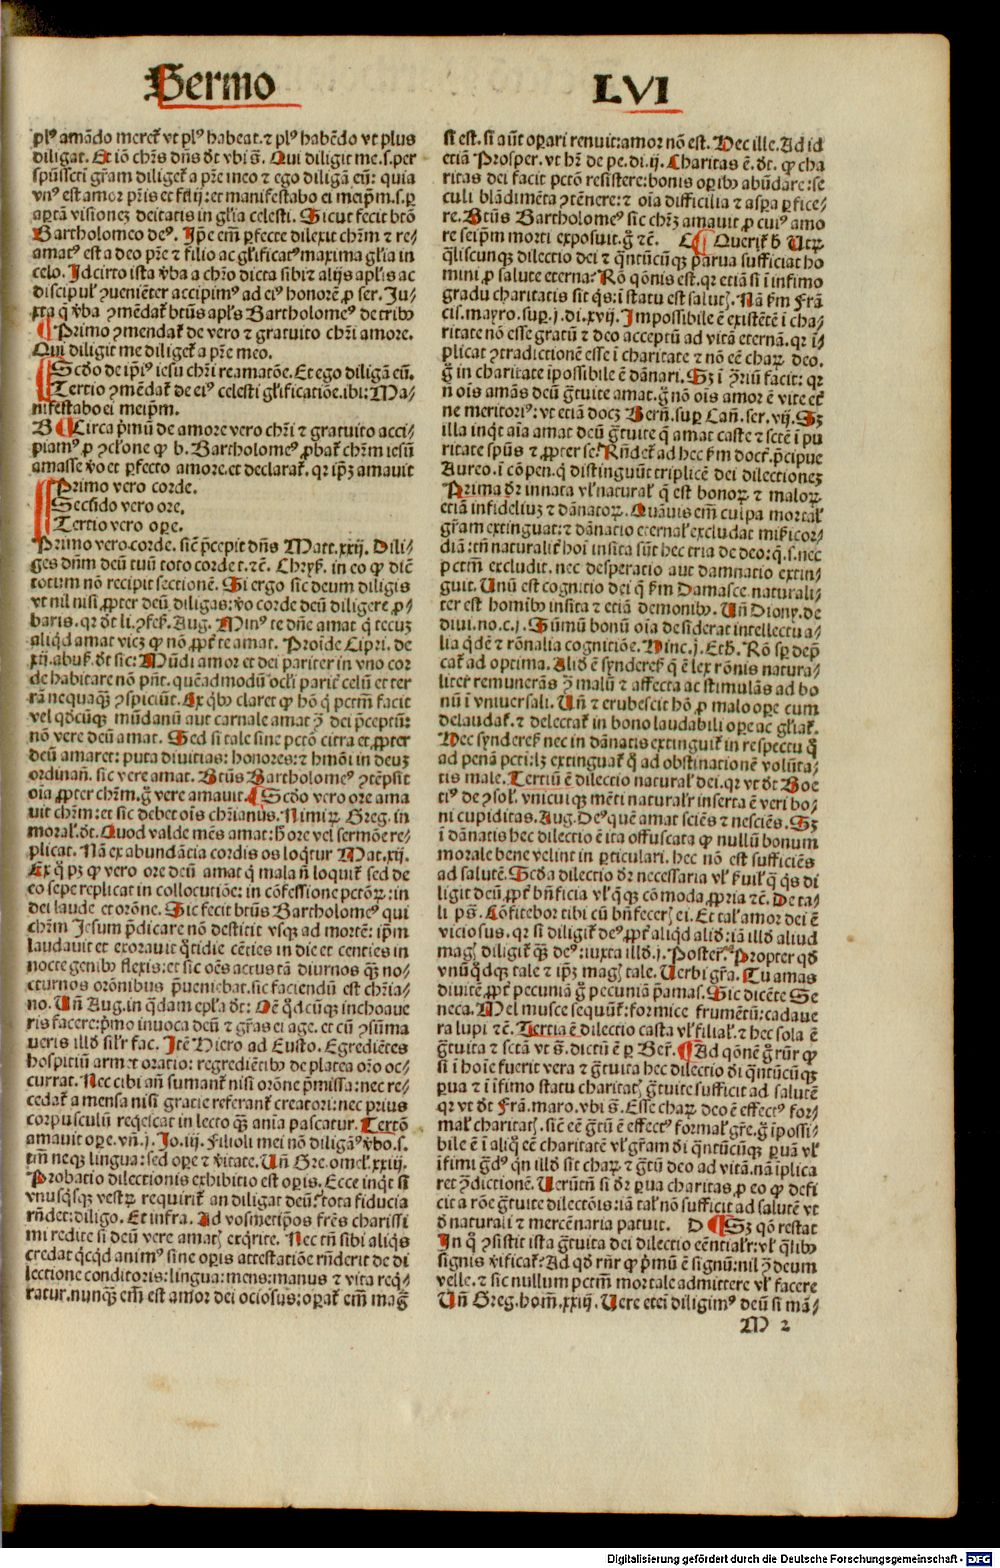 Sermo LVI
plꝰ amãdo meret᷑ vt plꝰ habeat. ⁊ plꝰ habẽdo vt plus
diligat. Et iõ chr̃s dñs d̃t vbi s̃. Qui diligit me .s. per
spũssctĩ gr̃am diliget᷑ a pr̃e meo ⁊ ego diligã eũ: quia
vnꝰ est amor pr̃is et filij: et manifestabo ei meip̃m .s. ꝑ
aꝑtã visionẽ deitatis in gl̃ia celesti. Sicut fecit btõ
Bartholomeo deꝰ. Ip̃e em̃ ꝑfecte dilexit chr̃m ⁊ re/
amatꝰ est a deo pr̃e ⁊ filio ac gl̃ificatꝰ maxima gl̃ia in
celo. Idcirto ista v̾ba a chr̃o dicta sibi ⁊ alijs apl̃is ac
discipul᷒ ꝯueniẽter accipimꝰ ad eiꝰ honorẽ ꝓ ser. Ju/
xta q̃ v̾ba ꝯmẽdat᷑ btũs apl̃s Bartholomeꝰ de tribꝰ
¶ Primo ꝯmendat᷑ de vero ⁊ gratuito chr̃i amore.
Qui diligit me diliget᷑ a pr̃e meo.
Scḋo de ip̃iꝰ iesu chr̃i reamatõe. Et ego diligã eũ.
Tertio ꝯmẽdat᷑ de eiꝰ celesti gl̃ificatiõe. ibi: Ma/
nifestabo ei meip̃m.
B ¶ Circa p̃mũ de amore vero chr̃i ⁊ gratuito acci/
piamꝰ ꝓ ꝯcl̃one ꝙ b. Bartholomeꝰ ꝓbat᷑ chr̃m iesũ
amasse v̾o et ꝑfecto amore. et declarat᷑. qr ip̃ꝫ amauit
Primo vero corde.
Secũdo vero ore.
Tertio vero oꝑe.
Primo vero corde. sic̃ p̃cepit dñs Matt. xxij. Dili/
ges dñm deũ tuũ toto corde t. ⁊c̃. Chryſ. in eo ꝙ dic̃
totum nõ recipit sectionẽ. Si ergo sic deum diligis
vt nil nisi ꝓpter deũ diligas: v̾o corde deũ diligere ꝓ/
baris. qr d̃t li. ꝯfeſ. Aug. Minꝰ te dñe amat q̃ tecuꝫ
aliq̃d amat vicꝫ ꝙ nõ ꝓpt᷑ te amat. Proĩde Cipri. de
xij. abus̃. d̃t sic: Mũdi amor et dei pariter in vno cor
de habitare nõ pñt. quẽadmodũ ocl̃i parit᷑ celũ et ter
rã nequaq̃ꝫ ꝯspiciũt. Ex q̃bꝰ claret ꝙ hõ q̃ pctm̃ facit
vel qḋcũqꝫ mũdanũ aut carnale amat ꝯ̃ dei p̃ceptũ:
nõ vere deũ amat. Sed si tale sine pctõ citra et ꝓpter
deũ amaret: puta diuitias: honores: ⁊ hmõi in deuꝫ
ordinañ. sic vere amat. Btũs Bartholomeꝰ ꝯtẽpsit
oĩa ꝓpter chr̃m. g̃ vere amauit. ¶ Scḋo vero ore ama
uit chr̃m: et sic debet oĩs chr̃ianꝰ. Nimiꝝ Greg. in
moral᷒. d̃t. Quod valde mẽs amat: h̃ ore vel sermõe re/
plicat. Nã ex abundãcia cordis os loq̃tur Mat. xij.
Ex q̃ pꝫ ꝙ vero ore deũ amat q̃ mala ñ loquit᷑ sed de
eo sepe replicat in collocutiõe: in cõfessione pctõꝝ: in
dei laude et orõne. Sic fecit btũs Bartholomeꝰ qui
chr̃m Jesum p̃dicare nõ destitit vsqꝫ ad mortẽ: ip̃m
laudauit et exorauit q̃tidie cẽties in die et centies in
nocte genibꝰ flexis: et sic oẽs actus tã diurnos q̃ꝫ no/
cturnos orõnibus p̃ueniebat. sic faciendũ est chr̃ia/
no. Uñ Aug. in q̃dam epl̃a d̃t: Oẽ q̃dcũqꝫ inchoaue
ris facere: p̃mo inuoca deũ ⁊ gr̃as ei age. et cũ ꝯsũma
ueris illḋ sil̃r fac. Itẽ Hiero ad Eusto. Egrediẽtes
hospitiũ armet oratio: regrediẽtibꝰ de platea or̃o oc/
currat. Nec cibi añ sumant᷑ nisi orõne p̃missa: nec re/
cedat᷑ a mensa nisi gracie referant᷑ creatori: nec prius
corpusculũ reqͥescat in lecto q̃ꝫ anĩa pascatur. Tertõ
amauit oꝑe. vñ. j. Jo. iij. Filioli mei nõ diligãꝰ v̾bo .s.
tm̃ neqꝫ lingua: sed oꝑe ⁊ v̾itate. Uñ Gre. omel᷒. xxiij.
Probatio dilectionis exhibitio est oꝑis. Ecce inq̃t si
vnusq̃sqꝫ vestꝝ requirit᷑ an diligat deũ: tota fiducia
rñdet: diligo. Et infra. Ad vosmetip̃os fr̃es charissi
mi redite si deũ vere amatꝭ exq̃rite. Nec tñ sibi aliq̃s
credat q̃cqḋ animꝰ sine oꝑis attestatiõe rñderit de di
lectione conditoris: lingua: mens: manus ⁊ vita req̃/
ratur. nunqꝫ em̃ est amor dei ociosus: oꝑat᷑ em̃ mag̃
si est. si aũt oꝑari renuit: amor nõ est. Hec ille. Ad id
etiã Prosper. vt hr̃ de pe. di. ij. Charitas ẽ. d̃t. ꝙ cha
ritas dei facit pctõ resistere: bonis oꝑibꝰ abũdare: se
culi blãdimẽta ꝯtẽnere: ⁊ oĩa difficilia ⁊ asꝑa ꝑfice/
re. Btũs Bartholomeꝰ sic chr̃ꝫ amauit ꝓ cuiꝰ amo
re seip̃m morti exposuit. g̃ ⁊c̃. C ¶ Querit᷑ h̾ Utꝝ
q̃liscunqꝫ dilectio dei ⁊ q̃ntũcũqꝫ parua sufficiat ho
mini ꝓ salute eterna? Rõ qõnis est. qr etiã si ĩ infimo
gradu charitatis sit q̃s: ĩ statu est salutꝭ. Nã ẜm Frã
cis. mayro. suꝑ. j. di. xvij. Impossibile ẽ existẽtẽ ĩ cha/
ritate nõ esse gratũ ⁊ deo acceptũ ad vitã eternã. qr ĩ/
plicat ꝯtradictionẽ esse ĩ charitate ⁊ nõ eẽ chaꝝ deo.
g̃ in charitate ĩpossibile ẽ dãnari. Sꝫ ĩ ꝯ̃riũ facit: qr
ñ oĩs amãs deũ g̃tuite amat. g̃ nõ oĩs amor ẽ vite et᷑
ne meritoriꝰ: vt etiã docꝫ Bern̄. suꝑ Cañ. ser. vij. Sꝫ
illa inq̃t aĩa amat deũ g̃tuite q̃ amat caste ⁊ sctẽ ĩ pu
ritate spũs ⁊ ꝓpter se? Rñdet᷑ ad hec ẜm doct̃. p̃cipue
Aureo. ĩ cõpen. q̃ distinguũt triplicẽ dei dilectionẽ
Prima d̃r innata vl᷑ natural᷒ q̃ est bonoꝝ ⁊ maloꝝ.
etiã infideliuꝫ ⁊ dãnatoꝝ. Quãuis em̃ culpa mortal᷒
gr̃am extinguat: ⁊ dãnatio eternal᷒ excludat mis̃icor/
diã: tñ naturalit᷑ hoĩ insita sũt hec tria de deo: q̃ .s. nec
ꝑ ctm̃ excludit. nec desperatio aut damnatio extin/
guit. Unũ est cognitio dei q̃ ẜm Damasce. naturali/
ter est homibꝰ insita ⁊ etiã demonibꝰ. Uñ Diony. de
diui. no. c. j. Sũmũ bonũ oĩa desiderat intellectu a/
lia q̃dẽ ⁊ rõnalia cognitiõe. Hinc. j. Eth̾. Rõ sꝑ dep̃
cat᷑ ad optima. Aliḋ ẽ synderes̃ q̃ ẽ lex rõnis natura/
liter remurmurãs ꝯ̃ malũ ⁊ affecta ac stimulãs ad bo
nũ ĩ vniuersali. Uñ ⁊ erubescit hõ ꝓ malo oꝑe cum
delaudat᷑. ⁊ delectat᷑ in bono laudabili oꝑe ac gl̃iat᷑.
Hec synderes̃ nec in dãnatis extinguit᷑ in respectu q̃
ad penã pcti: lꝫ extinguat᷑ q̃ ad obstinationẽ volũta/
tis male. Tertiũ ẽ dilectio natural᷒ dei. qr vt d̃t Boe
tiꝰ de ꝯsol᷒. vnicuiqꝫ mẽti natural᷑r inserta ẽ veri bo/
ni cupiditas. Aug. Deꝰ quẽ amat sciẽs ⁊ nesciẽs. Sꝫ
ĩ dãnatis hec dilectio ẽ ita offuscata ꝙ nullũ bonum
morale bene velint in ꝑticulari. hec nõ est sufficiẽs
ad salutẽ. Scḋa dilectio d̃r necessaria vl᷑ s̃uil᷒ q̃ q̃s di
ligit deũ. ꝓpt᷑ bñficia vl᷑ q̃qꝫ cõmoda. ꝓpria ⁊c̃. De ta/
li ps̃. Cõfitebor tibi cũ bñfecerꝭ ei. Et tal᷒ amor dei ẽ
viciosus. qr si diligit᷑ deꝰ ꝓpt᷑ aliq̃d aliḋ: iã illḋ aliud
magꝭ diligit᷑ q̃ꝫ deꝰ: iuxta illḋ. j. Poster̃. Propter qḋ
vnũq̃dqꝫ tale ⁊ ip̃ꝫ magꝭ tale. Uerbi gr̃a. Tu amas
diuitẽ ꝓpt᷑ pecuniã g̃ pecuniã p̃amas. Sic dicẽte Se
neca. Mel musce sequũt᷑: formice frumẽtũ: cadaue
ra lupi ⁊c̃. Tertia ẽ dilectio casta vl᷑ filial᷒. ⁊ hec sola ẽ
g̃tuita ⁊ sctã vt s̃. dictũ ẽ ꝑ Ber̃. ¶ Ad qõnẽ g̃ rñr ꝙ
si ĩ hoĩe fuerit vera ⁊ g̃tuita hec dilectio di q̃ntũcũqꝫ
ꝑua ⁊ ĩ ĩfimo statu charitatꝭ g̃tuite sufficit ad salutẽ
qr vt d̃t Frã. maro. vbi s̃. Esse chaꝝ deo ẽ effectꝰ for/
mal᷒ charitatꝭ. sic̃ eẽ g̃tũ ẽ effectꝰ formal᷒ gr̃e. g̃ ĩpossi/
bile ẽ ĩ aliq̃ eẽ charitatẽ vl᷑ gr̃am di q̃ntũcũqꝫ ꝑuã vl᷑
ĩfimi g̃dꝰ qn illḋ sit chaꝝ ⁊ g̃tũ deo ad vitã. nã ĩplica
ret ꝯ̃dictionẽ. Uerũtñ si d̃r ꝑua charitas ꝓ eo ꝙ defi
cit a rõe g̃tuite dilectõis: iã tal᷒ nõ sufficit ad salutẽ vt
d̃ naturali ⁊ mercẽnaria patuit. D ¶ Sꝫ qõ restat
In q̃ ꝯsistit ista g̃tuita dei dilectio eẽntial᷑r: vl᷑ q̃libꝰ
signis v̾ificat᷑? Ad qḋ rñr ꝙ p̃mũ ẽ signũ: nil ꝯ̃ deum
velle. ⁊ sic nullum pctm̃ mortale admittere vl᷑ facere
Uñ Greg. hom̃. xxiij. Uere etẽi diligimꝰ deũ si mã/
M 2
Digitalisierung gefördert durch die Deutsche Forschungsgemeinschaft - DFG